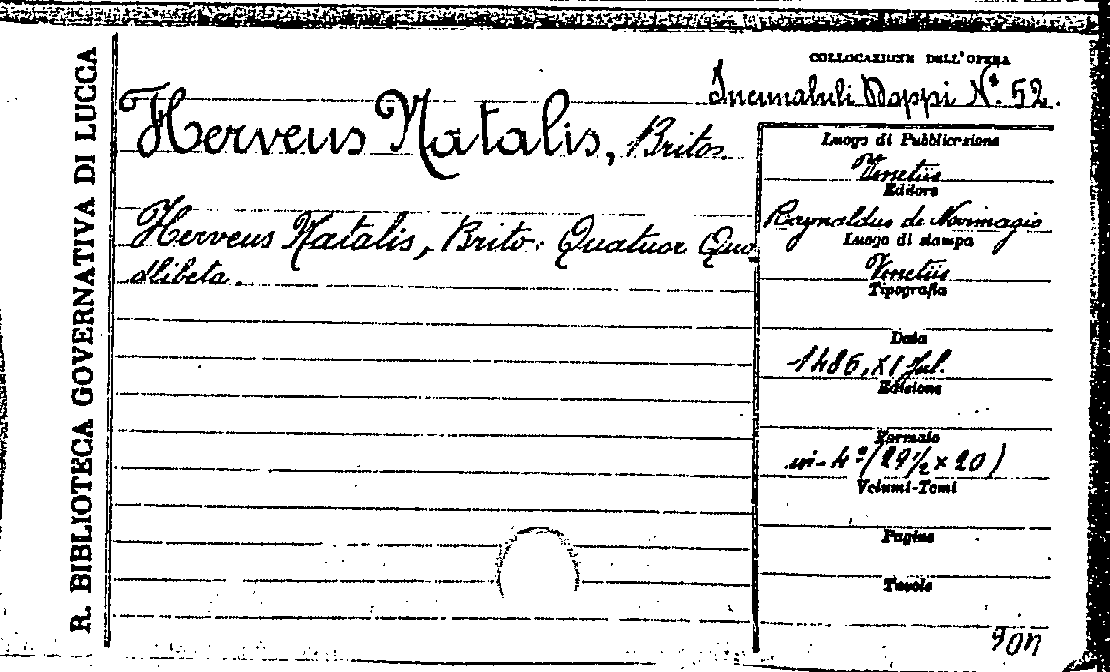 R. BIBLIOTECA GOVERNATIVA DI LUCCA
COLLOCAZIONE DELL'OPERA
Incunabuli Mappi N.° 52.
Herveus Natalis, Brito.
Herveus Natalis, Brito: Quatuor Quo
dlibeta.
Luogo di Pubblicazione
Venetiis
Editore
Raynaldus de Novimagio
Luogo di stampa
Venetiis
Tipografia
Data
1486, XI Jul.
Edizione
Formato
in-4° (29 1/2 × 20)
Volumi-Tomi
Pagine
Tavole